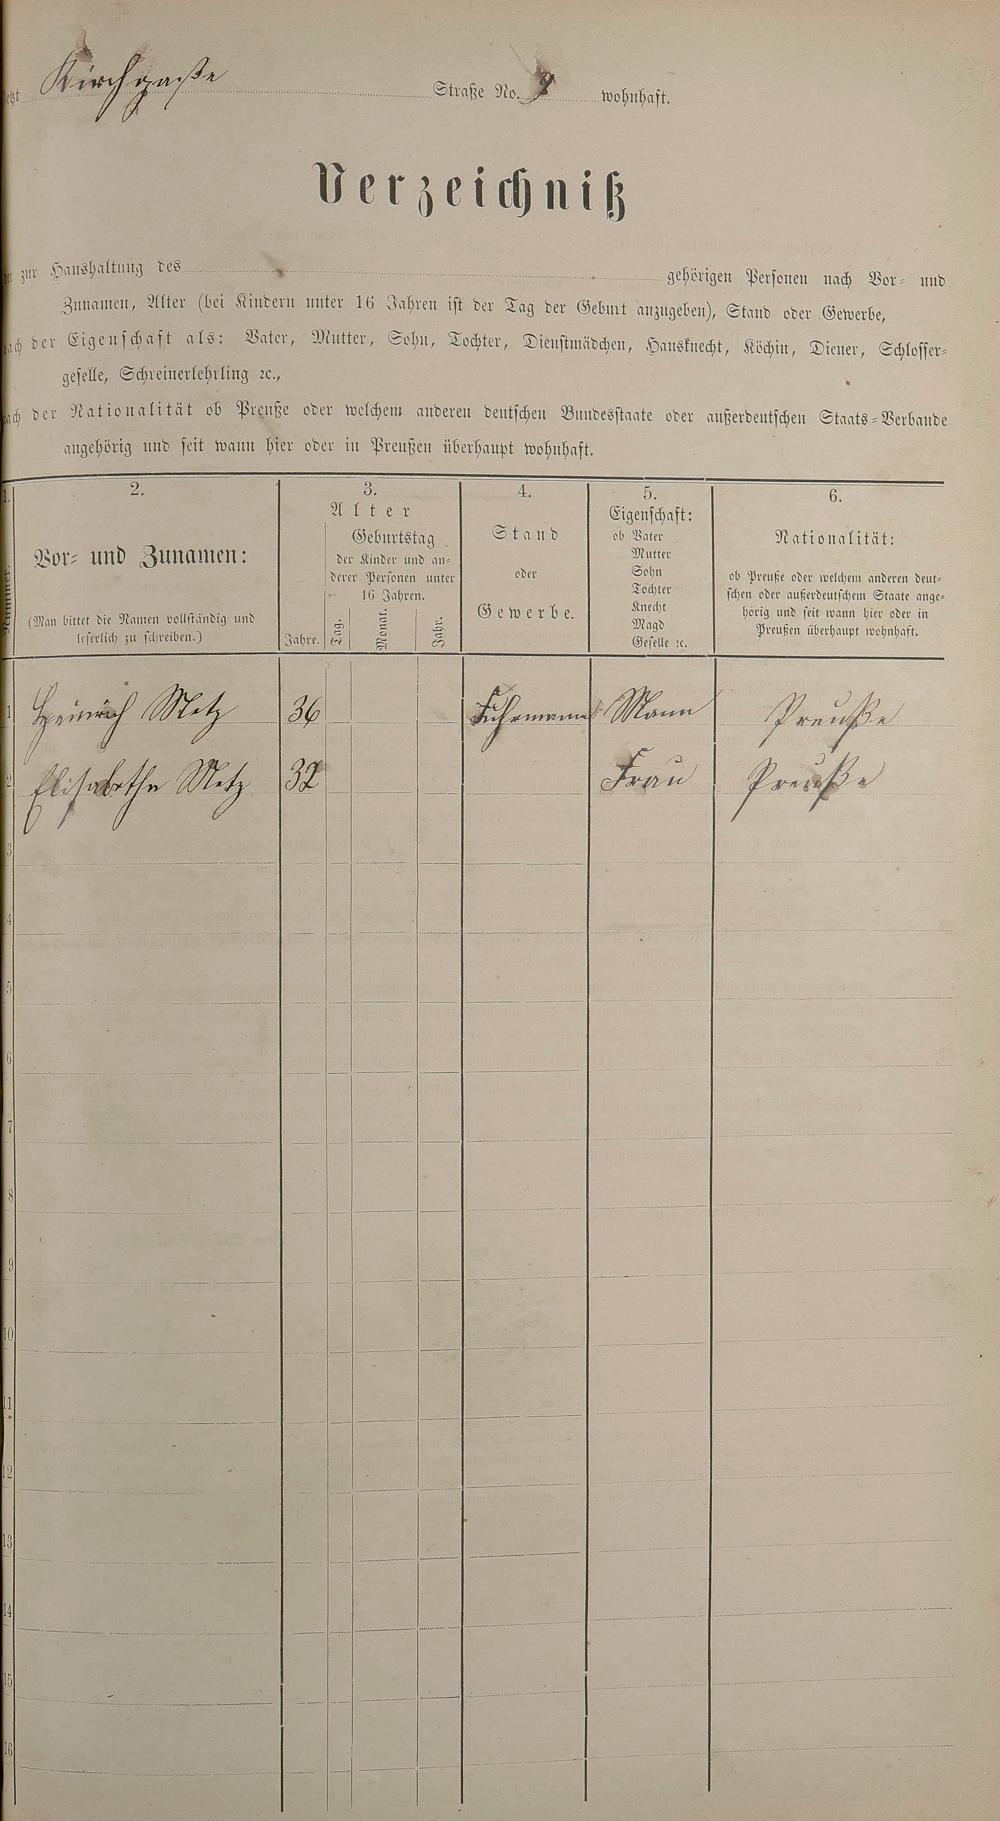 Jetzt Kirchgaße Straße No. 9 wohnhaft.
Verzeichniß
der zur Haushaltung des gehörigen Personen nach Vor- und
Zunamen, Alter (bei Kindern unter 16 Jahren ist der Tag der Geburt anzugeben), Stand oder Gewerbe,
nach der Eigenschaft als: Vater, Mutter, Sohn, Tochter, Dienstmädchen, Hausknecht, Köchin, Diener, Schlosser-
geselle, Schreinerlehrling ꝛc.,
nach der Nationalität ob Preuße oder welchem anderen deutschen Bundesstaate oder außerdeutschen Staats-Verbande
angehörig und seit wann hier oder in Preußen überhaupt wohnhaft.
1.
Nummer.
2.
Vor- und Zunamen:
(Man bittet die Namen vollständig und
leserlich zu schreiben.)
3.
Alter
Jahre.
Geburtstag
der Kinder und an-
derer Personen unter
16 Jahren.
Tag.
Monat.
Jahr.
4.
Stand
oder
Gewerbe.
5.
Eigenschaft:
ob Vater
Mutter
Sohn
Tochter
Knecht
Magd
Geselle ꝛc.
6.
Nationalität:
ob Preuße oder welchem anderen deut-
schen oder außerdeutschem Staate ange-
hörig und seit wann hier oder in
Preußen überhaupt wohnhaft.
1 Heinrich Metz 36 Fuhrmann Mann Preuße
2 Elisabetha Metz 32 Frau Preuße
3
4
5
6
7
8
9
10
11
12
13
14
15
16